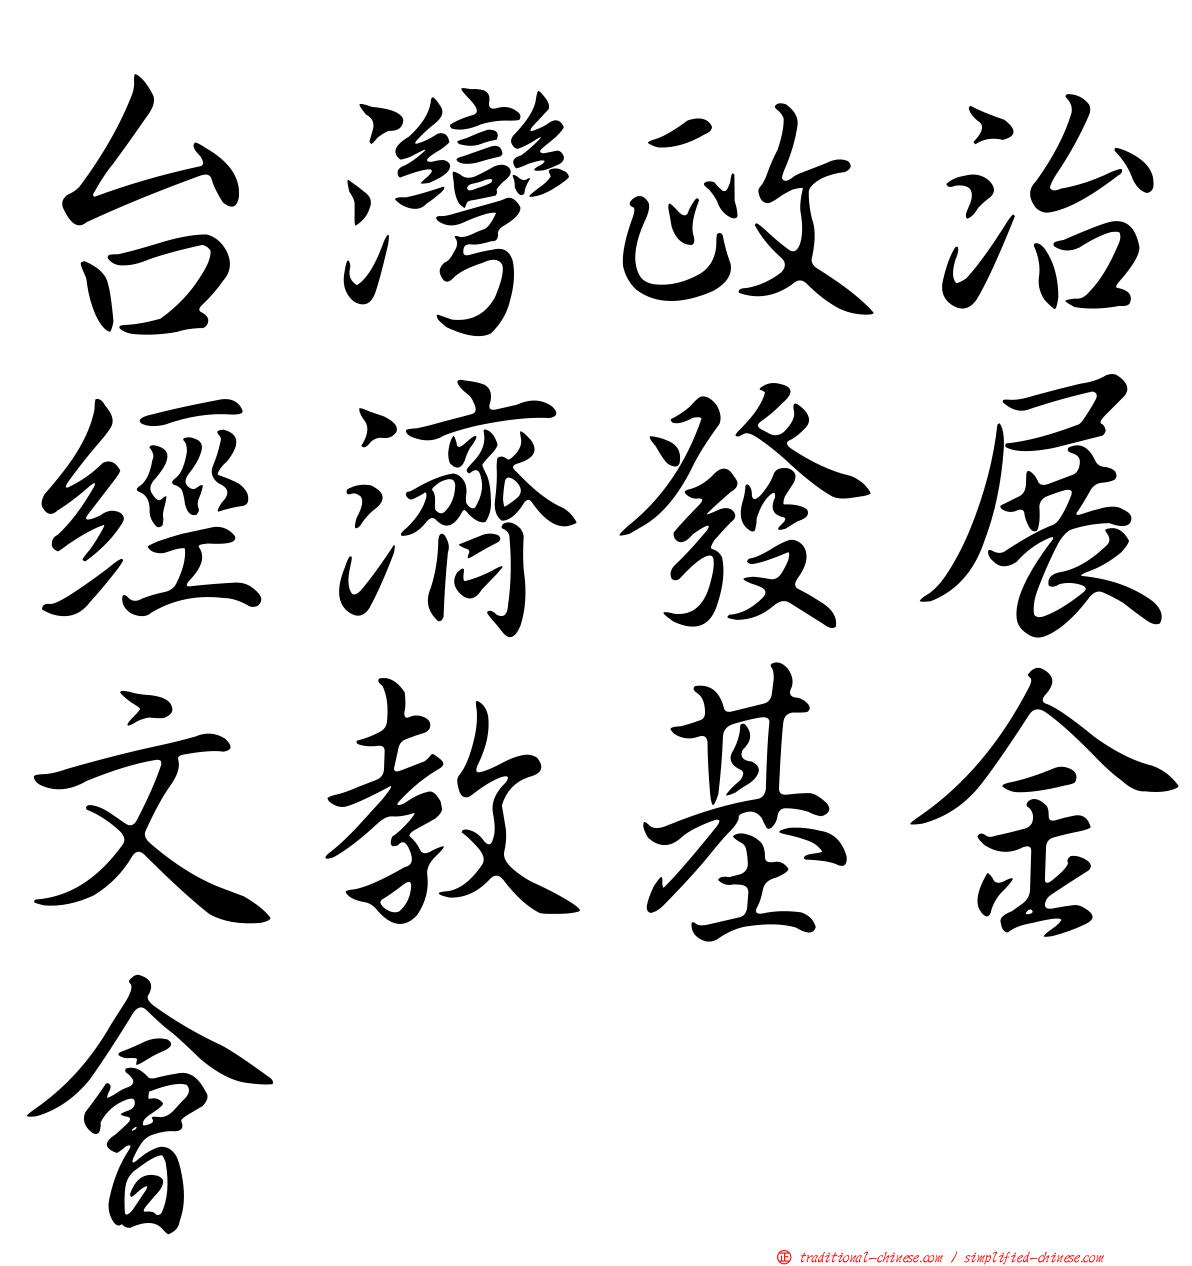 台灣政治
經濟發展
文教基金
會
㊣ traditional-chinese.com / simplified-chinese.com